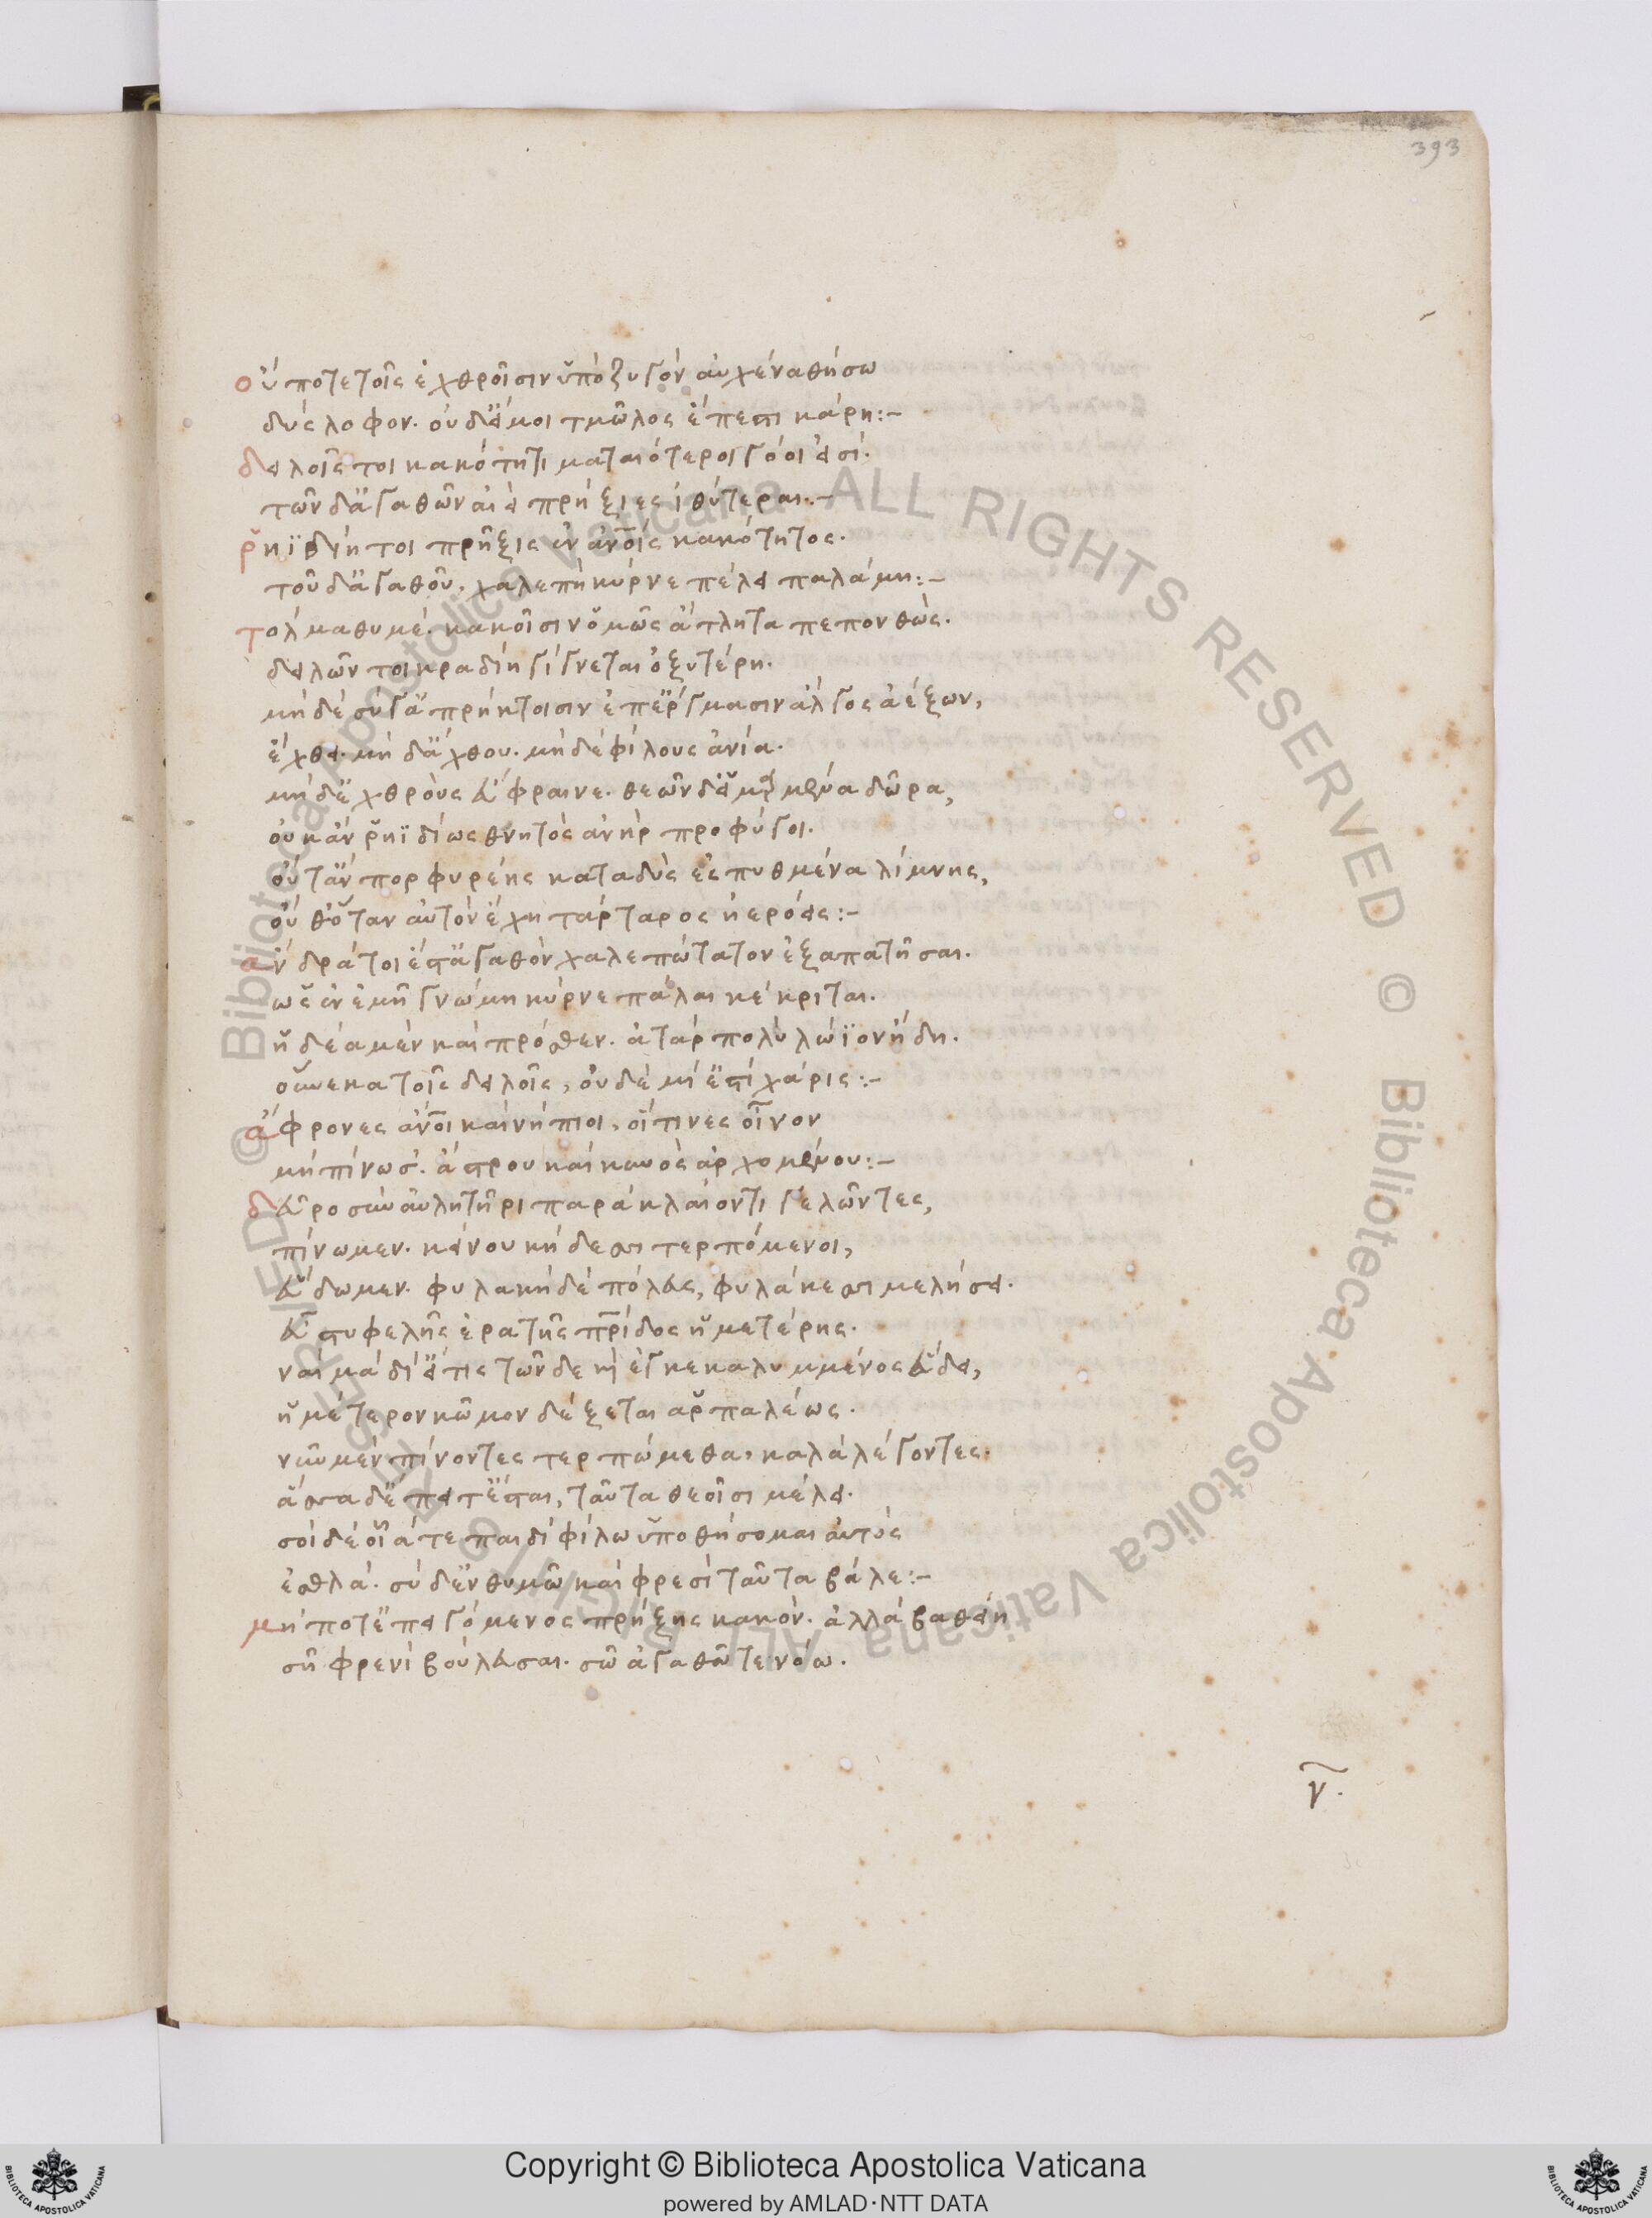 393
οὔποτε τοῖς ἐχθροῖσιν ὑπὸ ζυγὸν αὐχένα θήσω
δύσλοφον. οὐδ' εἴ μοι τμῶλος ἔπεστι κάρη:-
δειλοῖς τοι κακότητι ματαιότεροι γόοι εἰσί.
τῶν δ' ἀγαθῶν αἰεὶ πρήξιες ἰθύτεραι.-
ῥηϊδίη τοι πρῆξις ἐν ἀν̅οις κακότητος.
τοῦ δ' ἀγαθοῦ, χαλεπὴ κύρνε πέλει παλάμη:-
τόλμα θυμέ. κακοῖσιν ὅμως ἄτλητα πεπονθώς.
δειλῶν τοι κραδίη γίγνεται ὀξυτέρη.
μηδὲ σύ γ' ἀπρήκτοισιν ἐπ' ἔργμασιν ἄλγος ἀέξων,
ἔχθει. μὴ δ' ἄχθου. μηδὲ φίλους ἀνία.
μὴ δ' ἐχθροὺς εὔφραινε. θεῶν δ' εἱμαρμένα δῶρα,
οὐκ ἂν ῥηϊδίως θνητὸς ἀνὴρ προφύγοι.
οὔτ' ἂν πορφυρέης καταδὺς ἐς πυθμένα λίμνης,
οὔθ' ὅταν αὐτὸν ἔχη τάρταρος ἠερόεις:-
ἄνδρά τοι ἔστ' ἀγαθὸν χαλεπώτατον ἐξαπατῆσαι.
ὡς ἐν ἐμῆ γνώμη κύρνε πάλαι κέκριται.
ἤδεα μὲν καὶ πρόσθεν. ἀτὰρ πολὺ λώϊον ἤδη.
οὕνεκα τοῖς δειλοῖς, οὐδεμί' ἐστὶ χάρις:-
ἄφρονες ἄν̅οι καὶ νήπιοι, οἵτινες οἶνον
μὴ πίνουσ'. ἄστρου καὶ κυνὸς ἀρχομένου:-
δεῦρο σὺν αὐλητῆρι παρὰ κλαίοντι γελῶντες,
πίνωμεν. κείνου κήδεσι τερπόμενοι,
εὕδωμεν. φυλακὴ δὲ πόλευς, φυλάκεσσι μελήσει.
εὐ στυφελῆς ἐρατῆς πρ̅ίδος ἡμετέρης.
ναὶ μὰ δί' εἴ τις τῶνδε καὶ ἐγκεκαλυμμένος εὕδει,
ἡμέτερον κῶμον δέξεται ἁρπαλέως.
νῦν μὲν πίνοντες τερπώμεθα, καλὰ λέγοντες.
ἅσσα δ' ἔπειτ' ἔσται, ταῦτα θεοῖσι μέλει.
σοὶ δὲ οἷά τε παιδὶ φίλω ὑποθήσομαι αὐτὸς
ἐσθλά. σὺ δ' ἐν θυμῶ καὶ φρεσὶ ταῦτα βάλε:-
μήποτ' ἐπειγόμενος πρήξης κακόν. ἀλλὰ βαθείη
σῆ φρενὶ βούλευσαι. σῶ ἀγαθῶ τε νόω.
γ̅.
© Biblioteca Apostolica Vaticana ALL RIGHTS RESERVED © Biblioteca Apostolica Vaticana ALL RIGHTS RESERVED
Copyright © Biblioteca Apostolica Vaticana
powered by AMLAD・NTT DATA
BIBLIOTECA APOSTOLICA VATICANA
BIBLIOTECA APOSTOLICA VATICANA